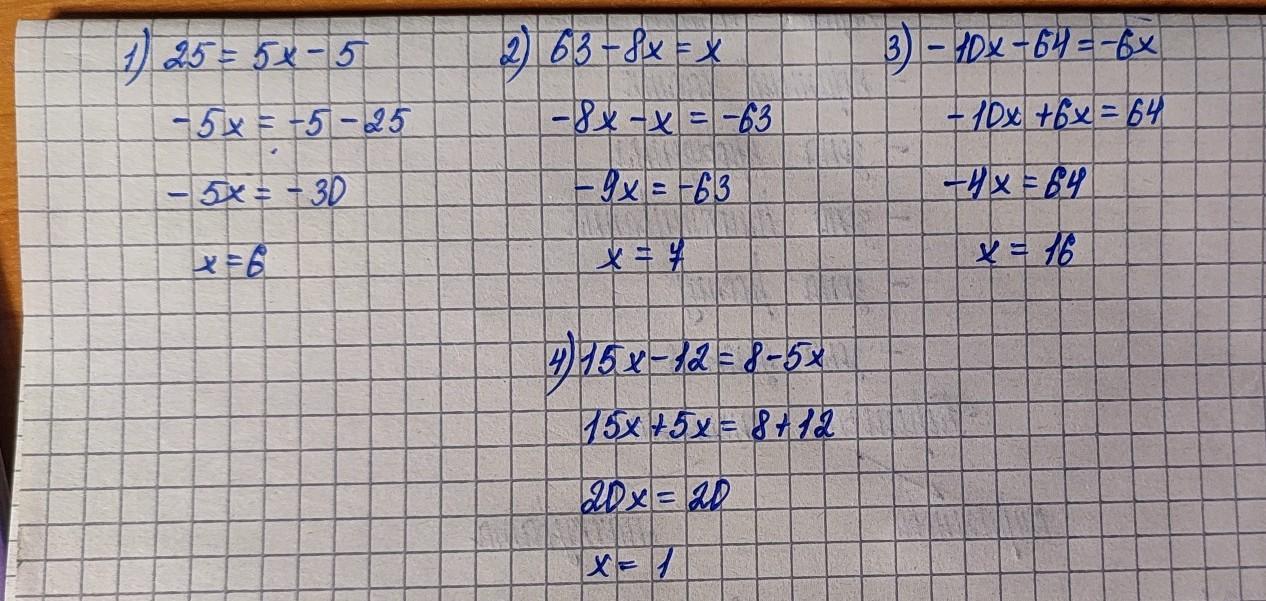 1) 25 = 5x - 5
-5x = -5 - 25
-5x = -30
x = 6
2) 63 - 8x = x
-8x - x = -63
-9x = -63
x = 7
3) -10x - 64 = -6x
-10x + 6x = 64
-4x = 64
x = 16
4) 15x - 12 = 8 - 5x
15x + 5x = 8 + 12
20x = 20
x = 1